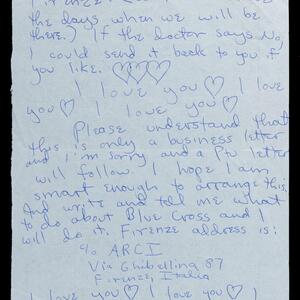 Firenze
the days when we will be
there.) If the doctor says No,
I could send it back to you if
you like. ♡♡♡
I love you ♡ I love
you ♡ I love you ♡
Please understand that
this is only a business letter
and I'm sorry and a letter
will follow. I hope I am
smart enough to arrange this.
And write and tell me what
to do about Blue Cross and I
will do it. Firenze address is:
℅ ARCI
Via Ghibellina 87
Firenze, Italia
I love you ♡ I love you ♡ I